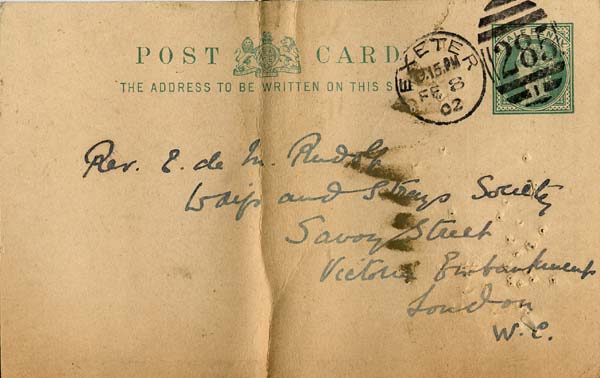 POST CARD
THE ADDRESS TO BE WRITTEN ON THIS S
EXETER
9.15.PM
FE 8
02
285
Rev. E. de M. Rudolf
Waifs and Strays Society
Savoy Street
Victoria Embankment
London
W.C.